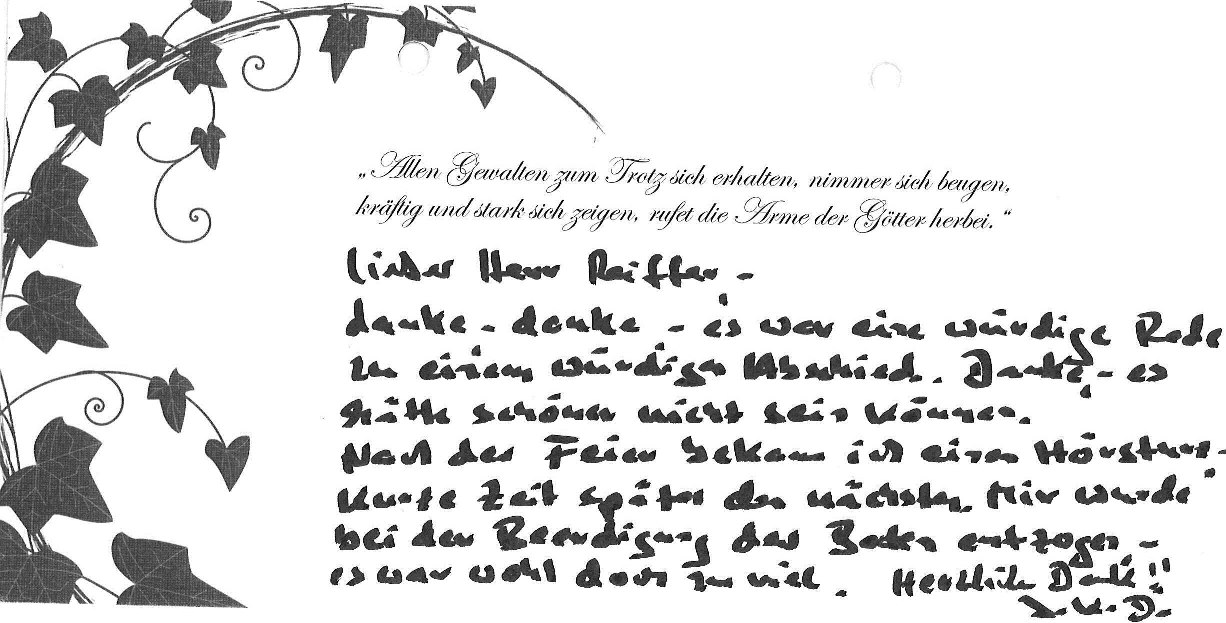 „Allen Gewalten zum Trotz sich erhalten, nimmer sich beugen,
kräftig und stark sich zeigen, rufet die Arme der Götter herbei.“
Lieber Herr Reiffer –
danke – danke – es war eine würdige Rede
zu einem würdigen Abschied. Danke, – es
hätte schöner nicht sein können.
Nach der Feier bekam ich einen Hörsturz –
kurze Zeit später den nächsten. Mir wurde
bei der Beerdigung der Boden entzogen –
es war wohl doch zu viel. Herzlich Dank!!